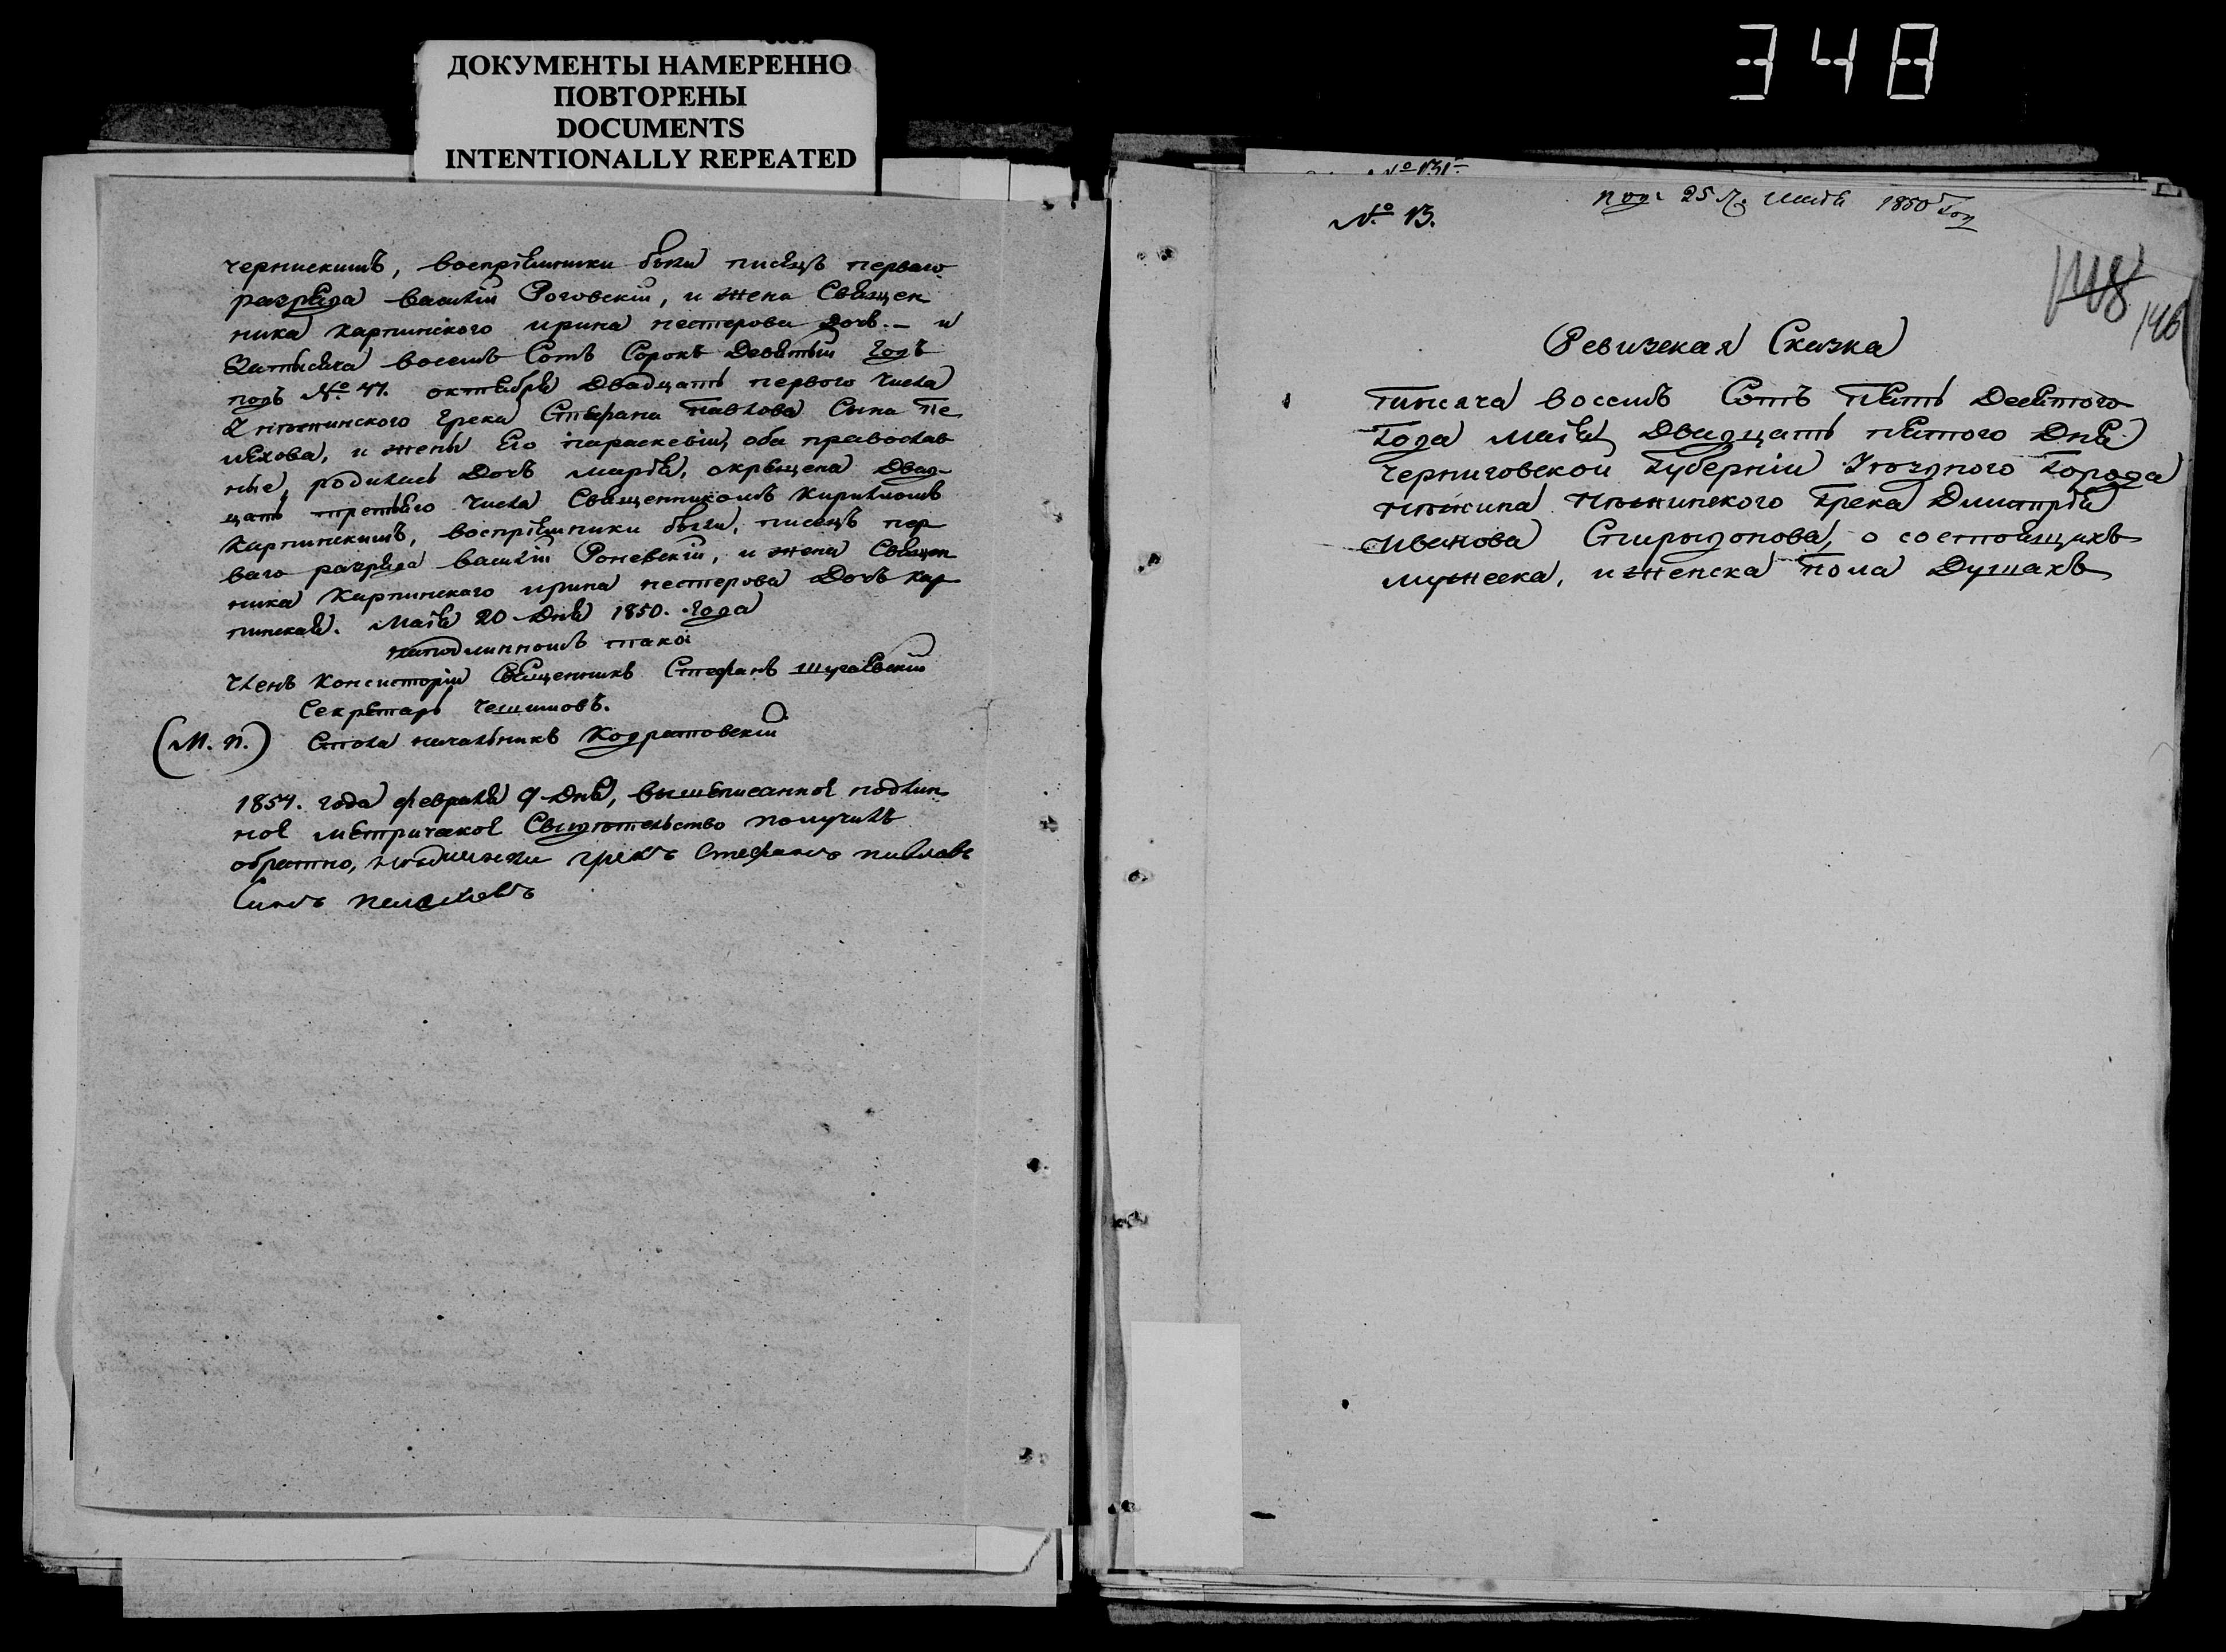 ДОКУМЕНТЫ НАМЕРЕННО
ПОВТОРЕНЫ
DOCUMENTS
INTENTIONALLY REPEATED
348
воспріемники были писецъ перваго
разряда василій Роговскій, и жена Священ
ника Карпинского ирина нестерова дочь. — и
Затысяча восемъ Сотъ Сорокъ Девятый Годъ
подъ № 47. октября Двадцать первого Числа
У нежинского Грека Стефана Павлова Сына Пе
лехова, и жены Его параскевіи, оба православ
ные, родилась Дочъ марія, окрещена Двад-
цать третьяго Числа Священникомъ Кириломъ
Карпинскимъ, воспріемники были, писецъ пер
ваго разряда василій Роневскій, и жена Священ
ника Карпинского ирина нестерова Дочъ Кар
пинская. Маія 20 Дня 1850. года
наподлинномъ тако:
Членъ Консисторіи Священникъ Стефанъ
Секретарь
(М. П.) Стола начальникъ Кодратовскій
1854. года февраля 9 Дня, вышеписанное подлин
ное метрическое Свидетельство получилъ
обратно, нежинскій грекъ Стефанъ павловъ
Сынъ
№ 131
№ 13.
25 Маія 1850 год
148
146
Ревизская Сказка
Тысяча восемъ Сотъ Пять Десятого
Года Маія Двадцать пятого Дня
Черниговской Губерніи Уезного Города
Нежина Нежинского Грека Димитрія
Иванова Спиридонова, о состоящихъ
мужеска, и женска Пола Душахъ